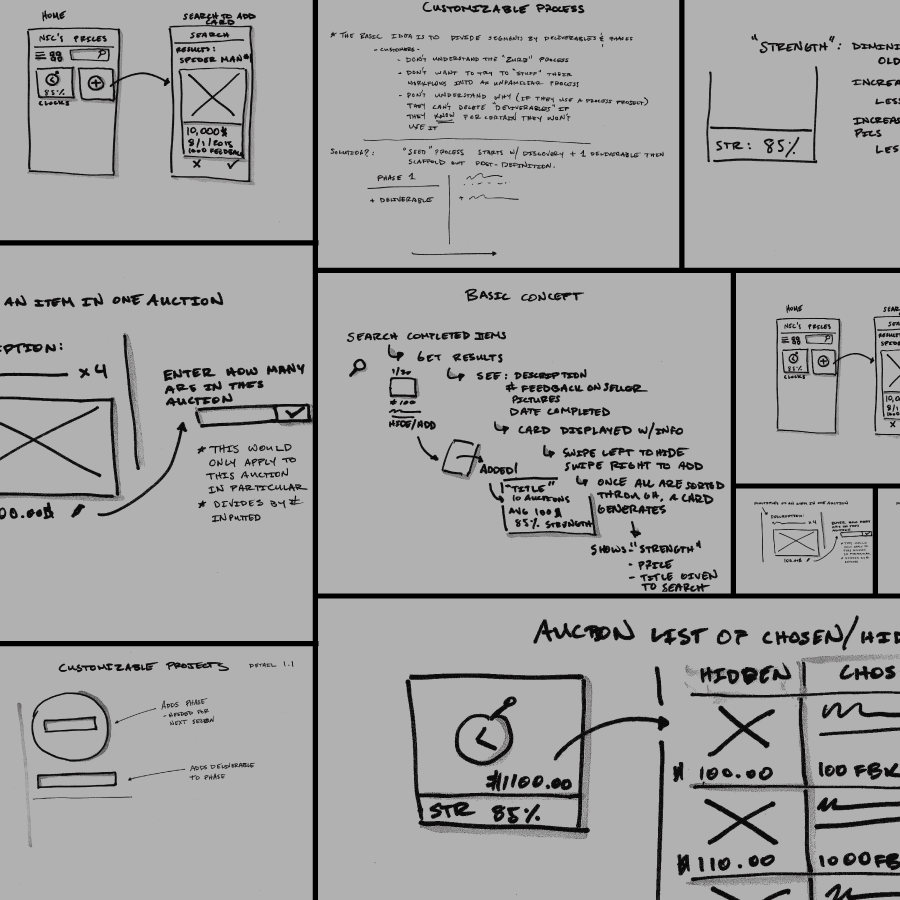 HOME
NIC'S PRICES
85%
CLOCKS
SEARCH TO ADD
CARD
SEARCH
RESULTS:
SPIDER MAN
10,000$
8/1/2015
1000 FEEDBACK
CUSTOMIZABLE PROCESS
* THE BASIC IDEA IS TO DIVIDE SEGMENTS BY DELIVERABLES & PHASES
- CUSTOMERS -
- DON'T UNDERSTAND THE "ZURB" PROCESS
- DON'T WANT TO TRY TO "STUFF" THEIR
WORKFLOWS INTO AN UNFAMILIAR PROCESS
- DON'T UNDERSTAND WHY (IF THEY USE A PROCESS PROJECT)
THEY CAN'T DELETE "DELIVERABLES" IF
THEY KNOW FOR CERTAIN THEY WON'T
USE IT
SOLUTION?: "SEED" PROCESS STARTS W/ DISCOVERY + 1 DELIVERABLE THEN
SCAFFOLD OUT POST-DEFINITION.
PHASE 1
+ DELIVERABLE
+
"STRENGTH": DIMINI
OLD
INCREA
LES
INCREAS
PICS
LES
STR: 85%
AN ITEM IN ONE AUCTION
PTION:
x4
ENTER HOW MANY
ARE IN THIS
AUCTION
* THIS WOULD
ONLY APPLY TO
THIS AUCTION
IN PARTICULAR
* DIVIDES BY #
INPUTTED
00.00$
BASIC CONCEPT
SEARCH COMPLETED ITEMS
GET RESULTS
1/30
$100
HIDE/ADD
SEE: DESCRIPTION
# FEEDBACK ON SELLER
PICTURES
DATE COMPLETED
CARD DISPLAYED W/INFO
SWIPE LEFT TO HIDE
SWIPE RIGHT TO ADD
ADDED!
"TITLE"
10 AUCTIONS
AVG 100$
85% STRENGTH
ONCE ALL ARE SORTED
THROUGH, A CARD
GENERATES
SHOWS: "STRENGTH"
- PRICE
- TITLE GIVEN
TO SEARCH
HOME
NIC'S PRICES
85%
CLOCKS
SEAR
SEA
RESULTS
SPIDER
10,0
8/1
100
MULTIPLES OF AN ITEM IN ONE AUCTION
DESCRIPTION:
x4
ENTER HOW MANY
ARE IN THIS
AUCTION
100.00$
CUSTOMIZABLE PROJECTS
DETAIL 1.1
ADDS PHASE
- NEEDED FOR
NEXT SESSION
ADDS DELIVERABLE
TO PHASE
AUCTION LIST OF CHOSEN/HID
$1100.00
STR 85%
HIDDEN
CHOS
$ 100.00
100 FBK
$ 110.00
1000 FB